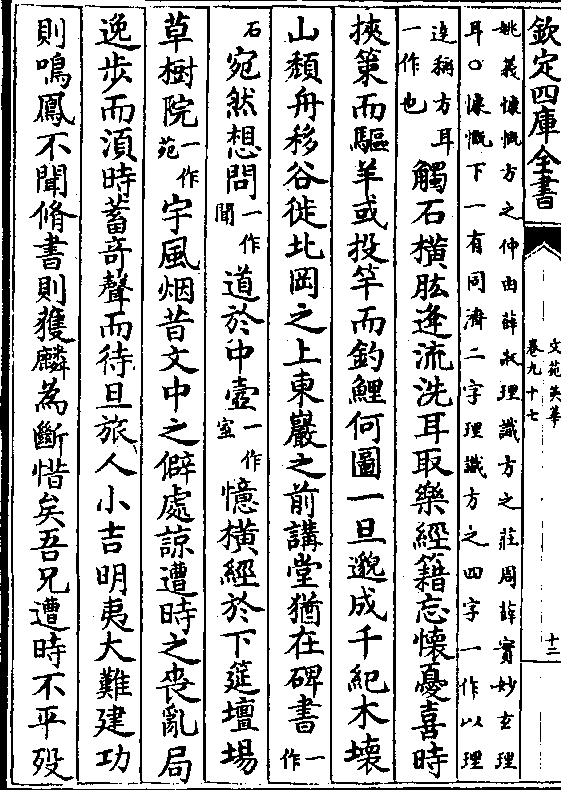 欽定四庫全書
文苑英華
卷九十七
十二
姚義慷慨方之仲由薛収理識方之莊周薛實妙玄理
耳○慷慨下一有同濟二字理識方之四字一作以理
逹稱方耳
一作也
觸石橫肱逢流洗耳取樂經籍忘懷憂喜時
挾策而驅羊或投竿而釣鯉何圖一旦邈成千紀木壞
山頽舟移谷徙北岡之上東巖之前講堂猶在碑書一作
石宛然想問一作聞道於中壺一作室憶橫經於下筵壇場
草樹院一作苑宇風烟昔文中之僻處諒遭時之喪亂局
逸步而湏時蓄竒聲而待旦旅人小吉明夷大難建功
則鳴鳳不聞脩書則獲麟為斷惜矣吾兄遭時不平殁